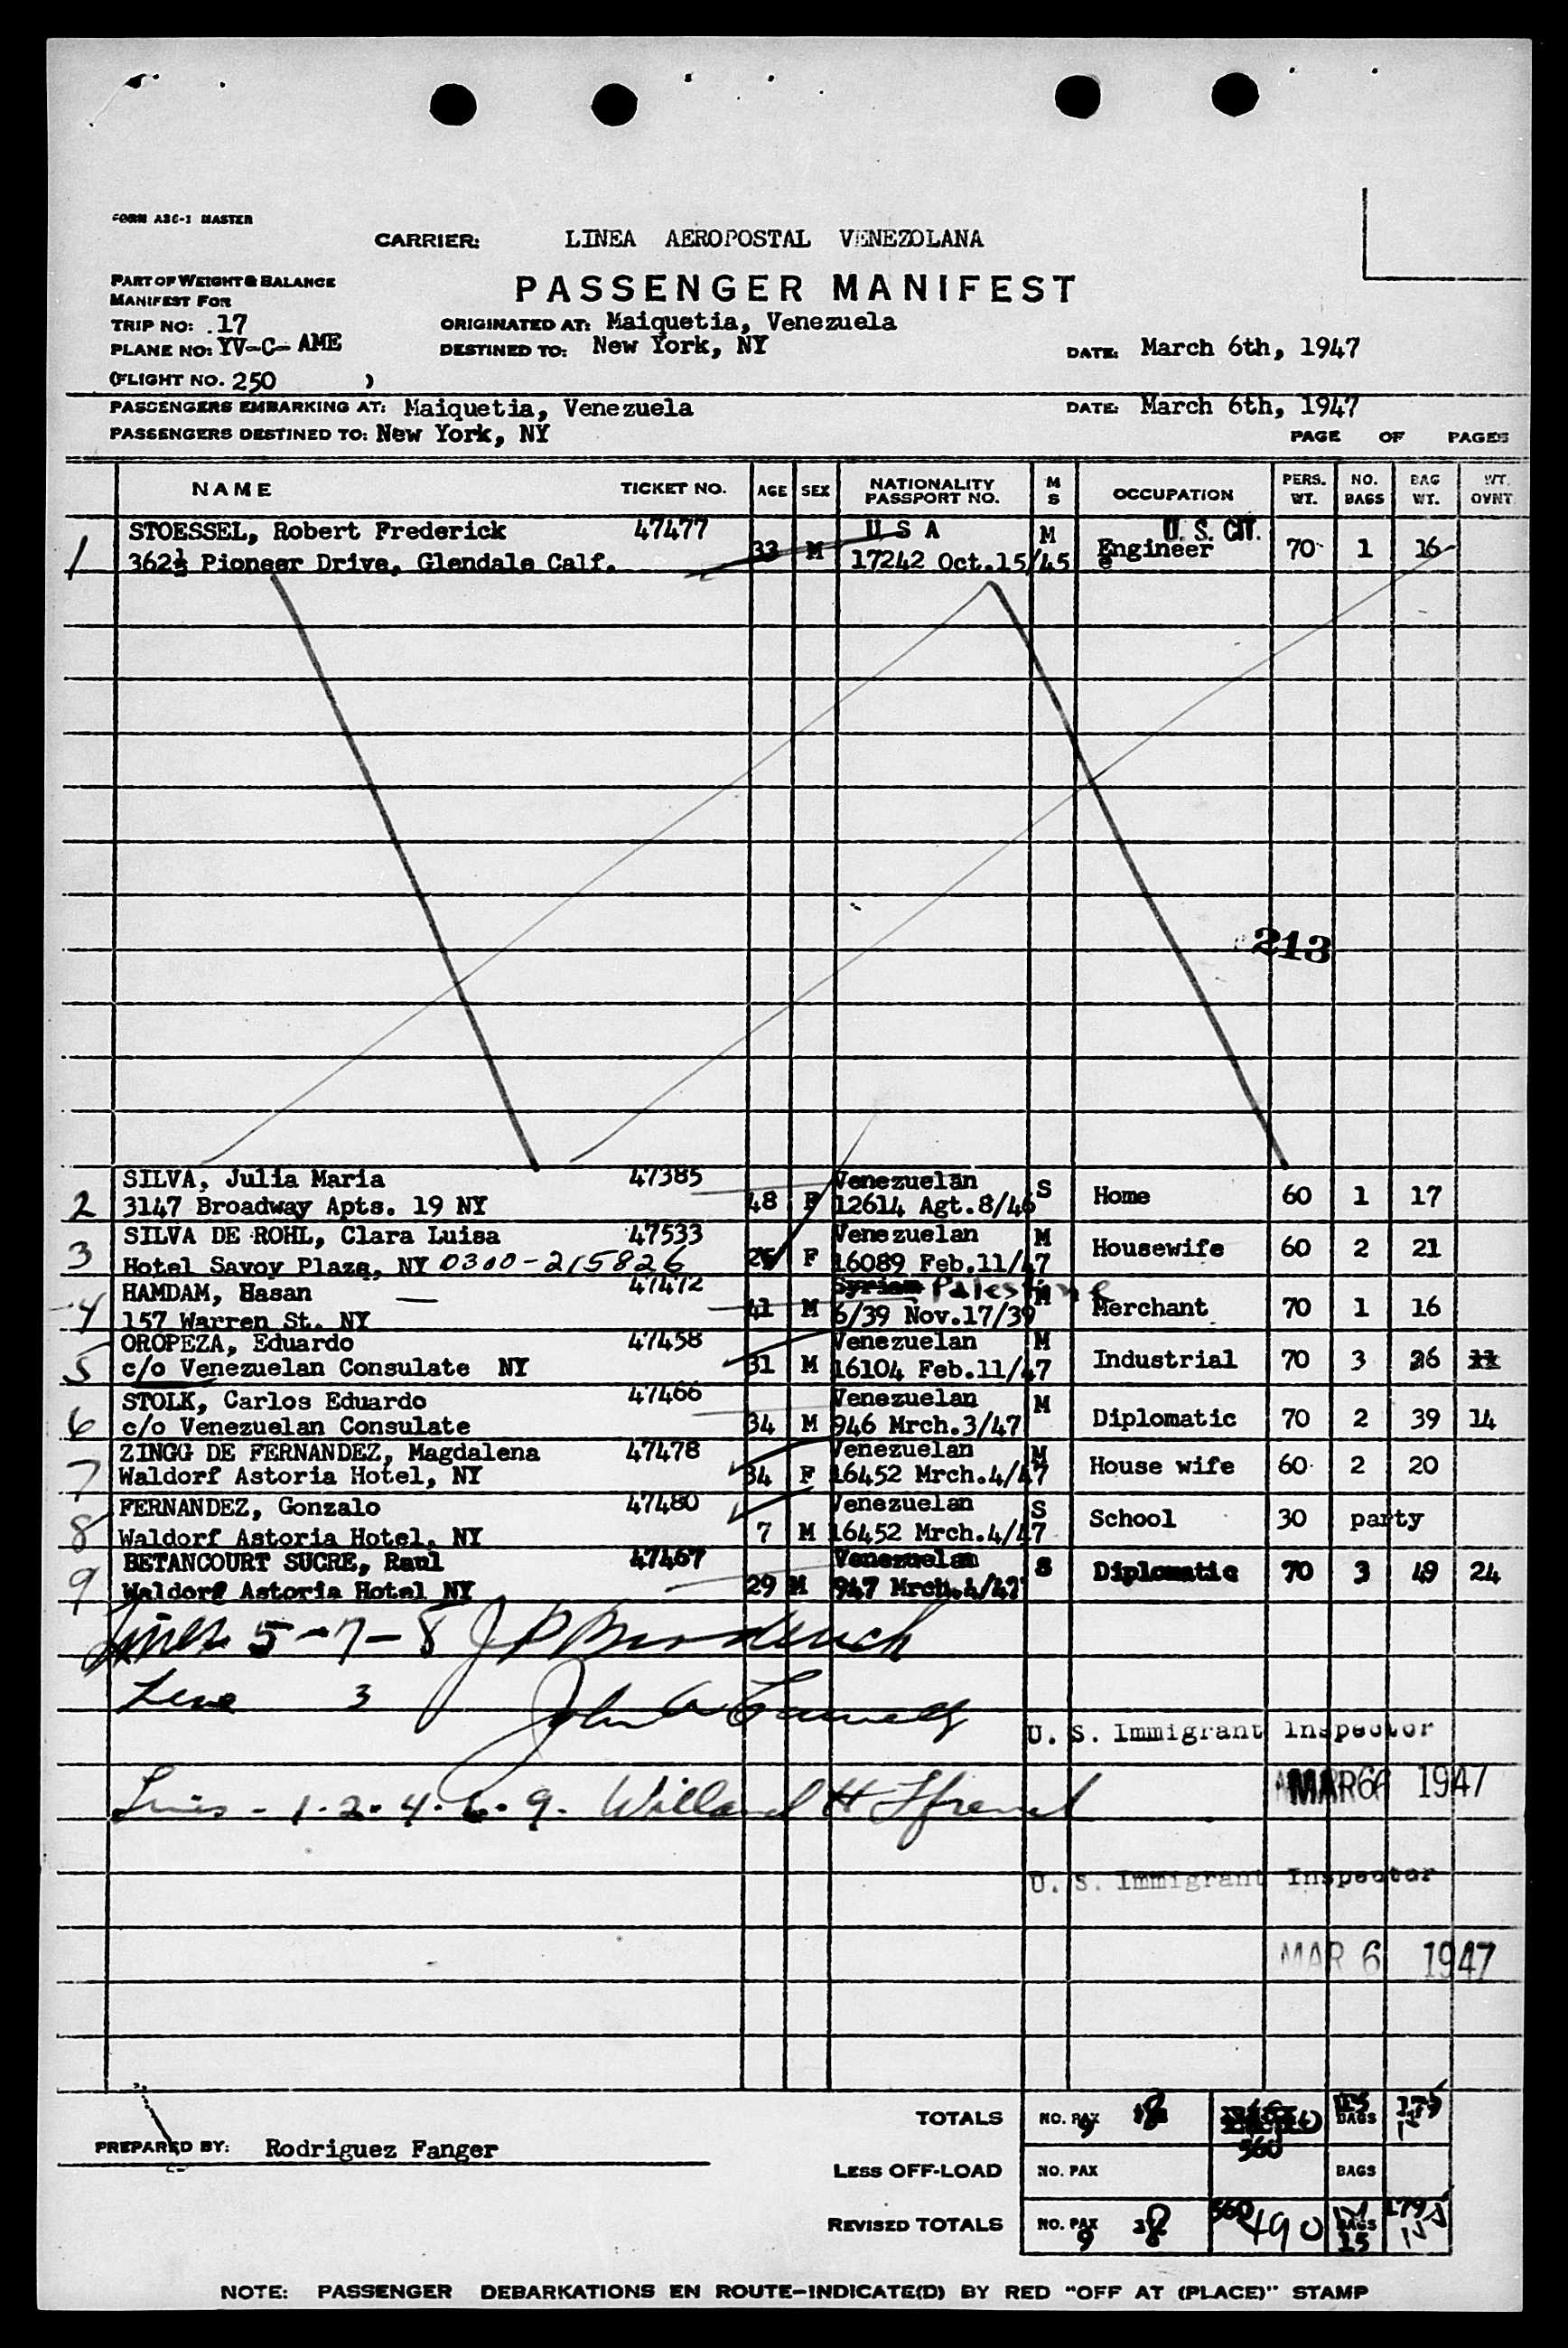 FORM ABC-1 MASTER
CARRIER: LINEA AEROPOSTAL VENEZOLANA
PART OF WEIGHT & BALANCE
MANIFEST FOR
PASSENGER MANIFEST
TRIP NO: 17
ORIGINATED AT: Maiquetia, Venezuela
PLANE NO: YV-C-AME
DESTINED TO: New York, NY
DATE: March 6th, 1947
(FLIGHT NO. 250 )
PASSENGERS EMBARKING AT: Maiquetia, Venezuela DATE: March 6th, 1947
PASSENGERS DESTINED TO: New York, NY PAGE OF PAGES
NAME TICKET NO. AGE SEX NATIONALITY PASSPORT NO. M S OCCUPATION PERS. WT. NO. BAGS BAG WT. WT. OVNT
STOESSEL, Robert Frederick 47477 U S A M U. S. CIT.
1 362½ Pioneer Drive, Glendale Calf. 33 M 17242 Oct.15/45 Engineer 70 1 16
213
SILVA, Julia Maria 47385 Venezuelan S
2 3147 Broadway Apts. 19 NY 48 F 12614 Agt.8/46 Home 60 1 17
SILVA DE ROHL, Clara Luisa 47533 Venezuelan M
3 Hotel Savoy Plaza, NY 0300-215826 F 16089 Feb.11/47 Housewife 60 2 21
HAMDAM, Hasan 47472 Syrian Palestine M
4 157 Warren St. NY 41 M 6/39 Nov.17/39 Merchant 70 1 16
OROPEZA, Eduardo 47458 Venezuelan M
5 c/o Venezuelan Consulate NY 31 M 16104 Feb.11/47 Industrial 70 3 36 11
STOLK, Carlos Eduardo 47466 Venezuelan M
6 c/o Venezuelan Consulate 34 M 946 Mrch.3/47 Diplomatic 70 2 39 14
ZINGG DE FERNANDEZ, Magdalena 47478 Venezuelan M
7 Waldorf Astoria Hotel, NY 34 F 16452 Mrch.4/47 House wife 60 2 20
FERNANDEZ, Gonzalo 47480 Venezuelan S
8 Waldorf Astoria Hotel, NY 7 M 16452 Mrch.4/47 School 30 party
BETANCOURT SUCRE, Raul 47467 Venezuelan S
9 Waldorf Astoria Hotel NY 29 M 947 Mrch.4/47 Diplomatic 70 3 49 24
Lines 5-7-8
Line 3 John
U. S. Immigrant Inspector
MAR 6 1947
Lines - 1-2-4-6-9. Willard H
U. S. Immigrant Inspector
MAR 6 1947
TOTALS NO. PAX 9 8 560 BAGS
PREPARED BY: Rodriguez Fanger
LESS OFF-LOAD NO. PAX BAGS
REVISED TOTALS NO. PAX 9 8 560 490 BAGS 15
NOTE: PASSENGER DEBARKATIONS EN ROUTE-INDICATE(D) BY RED "OFF AT (PLACE)" STAMP